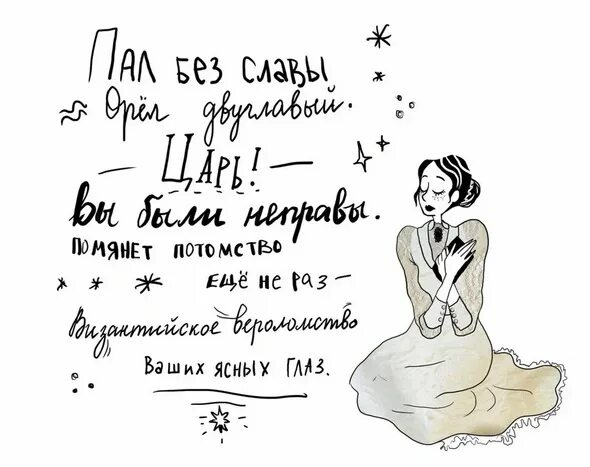 Пал без славы
Орёл двуглавый.
— Царь! —
Вы были неправы.
помянет потомство
ещё не раз —
Византийское вероломство
Ваших ясных глаз.